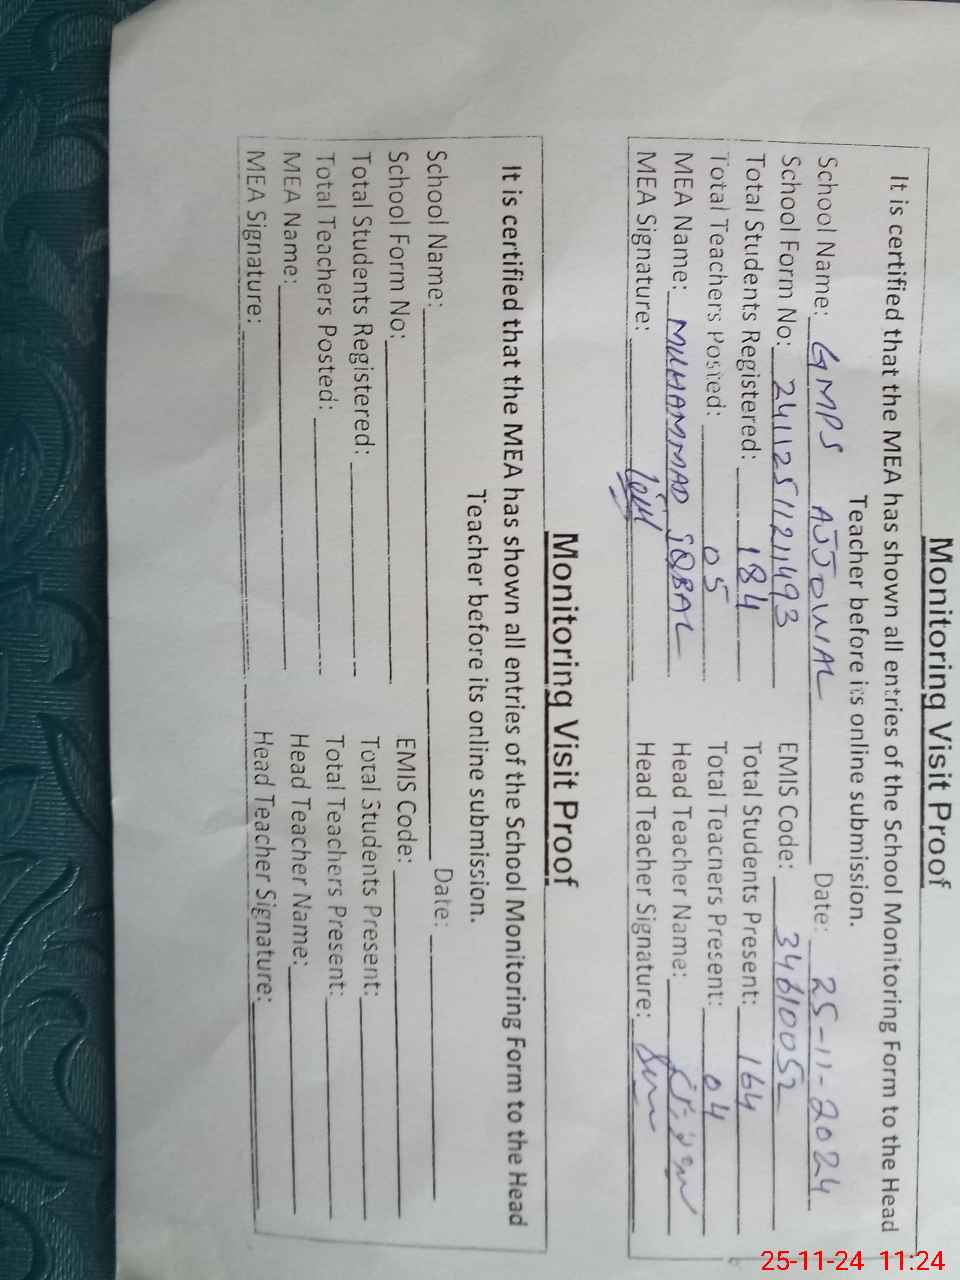 Monitoring Visit Proof
It is certified that the MEA has shown all entries of the School Monitoring Form to the Head
Teacher before its online submission.
School Name: GMPS AJJOWAL Date: 25-11-2024
School Form No: 24112511211493 EMIS Code: 34610052
Total Students Registered: 184 Total Students Present: 164
Total Teachers Posted: 05 Total Teachers Present: 04
MEA Name: MUHAMMAD IQBAL Head Teacher Name:
MEA Signature: Head Teacher Signature:
Monitoring Visit Proof
It is certified that the MEA has shown all entries of the School Monitoring Form to the Head
Teacher before its online submission.
School Name: Date:
School Form No: EMIS Code:
Total Students Registered: Total Students Present:
Total Teachers Posted: Total Teachers Present:
MEA Name: Head Teacher Name:
MEA Signature: Head Teacher Signature:
25-11-24 11:24